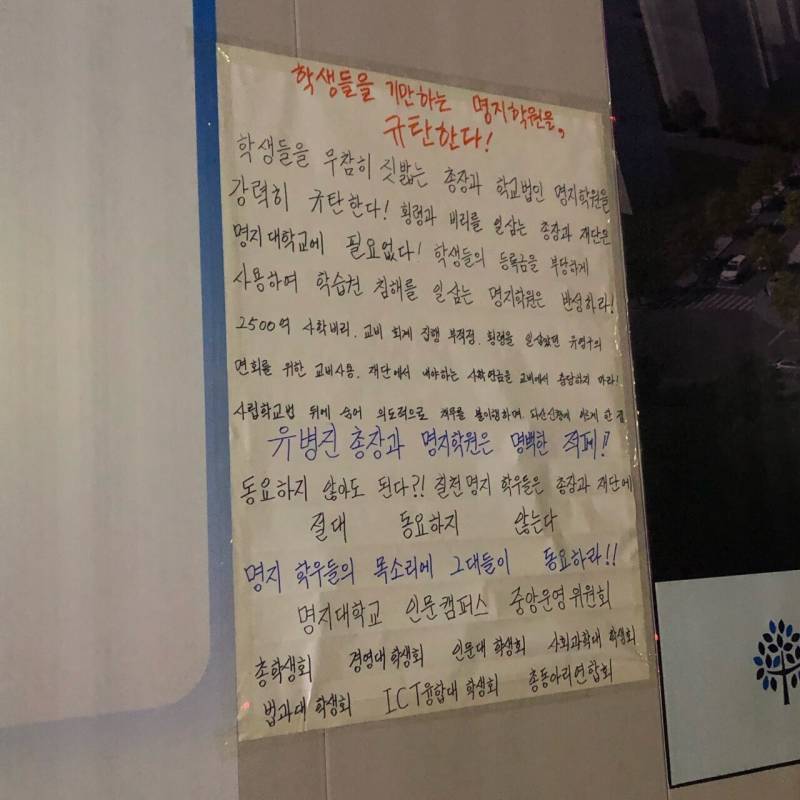 학생들을 기만하는 명지학원을,
규탄한다!
학생들을 무참히 짓밟는 총장과 학교법인 명지학원을
강력히 규탄한다! 횡령과 비리를 일삼는 총장과 재단은
명지대학교에 필요없다! 학생들의 등록금을 부당하게
사용하여 학습권 침해를 일삼는 명지학원은 반성하라!
2500억 사학비리, 교비 회계 집행 부적정, 횡령을 일삼았던 유영구의
면회를 위한 교비사용, 재단에서 내야하는 사학연금을 교비에서 충당하지 마라!
사립학교법 뒤에 숨어 의도적으로 채무를 불이행하며 파산신청에 이르게 한 점
유병진 총장과 명지학원은 명백한 적폐!!
동요하지 않아도 된다?! 칠천명지 학우들은 총장과 재단에
절대 동요하지 않는다
명지 학우들의 목소리에 그대들이 동요하라!!
명지대학교 인문캠퍼스 중앙운영위원회
총학생회 경영대 학생회 인문대 학생회 사회과학대 학생회
법과대 학생회 ICT융합대 학생회 총동아리연합회